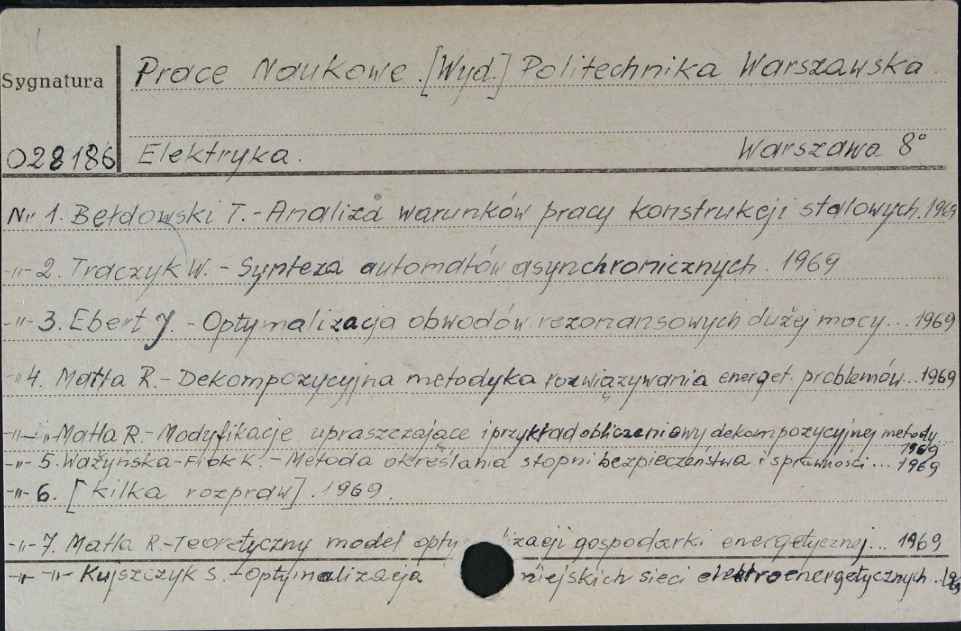 Prace Naukowe. [Wyd.] Politechnika Warszawska
Sygnatura
028186 Elektryka. Warszawa 8°
Nr 1. Bełdowski T. - Analiza warunków pracy konstrukcji stalowych. 1969
-"- 2. Traczyk W. - Synteza automatów asynchronicznych. 1969
-"- 3. Ebert J. - Optymalizacja obwodów rezonansowych dużej mocy... 1969
-"- 4. Matla R. - Dekompozycyjna metodyka rozwiązywania energet. problemów... 1969
-"- -"- Matla R. - Modyfikacje upraszczające i przykład obliczeniowy dekompozycyjnej metody
1969
-"- 5. Ważyńska-Fiok K. - Metoda określania stopni bezpieczeństwa i sprawności... 1969
-"- 6. [kilka rozpraw]. 1969.
-"- 7. Matla R. - Teoretyczny model opty izacji gospodarki energetycznej... 1969
-"- -"- Kujszczyk S. - Optymalizacja miejskich sieci elektroenergetycznych. 1969